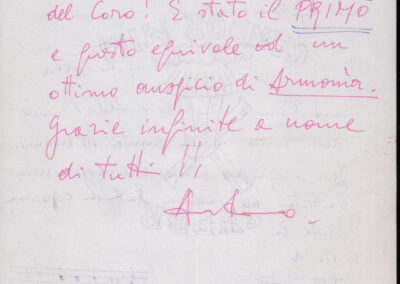 del Coro! È stato il PRIMO
e questo equivale ad un
ottimo auspicio di Armonia.
Grazie infinite a nome
di tutti!!